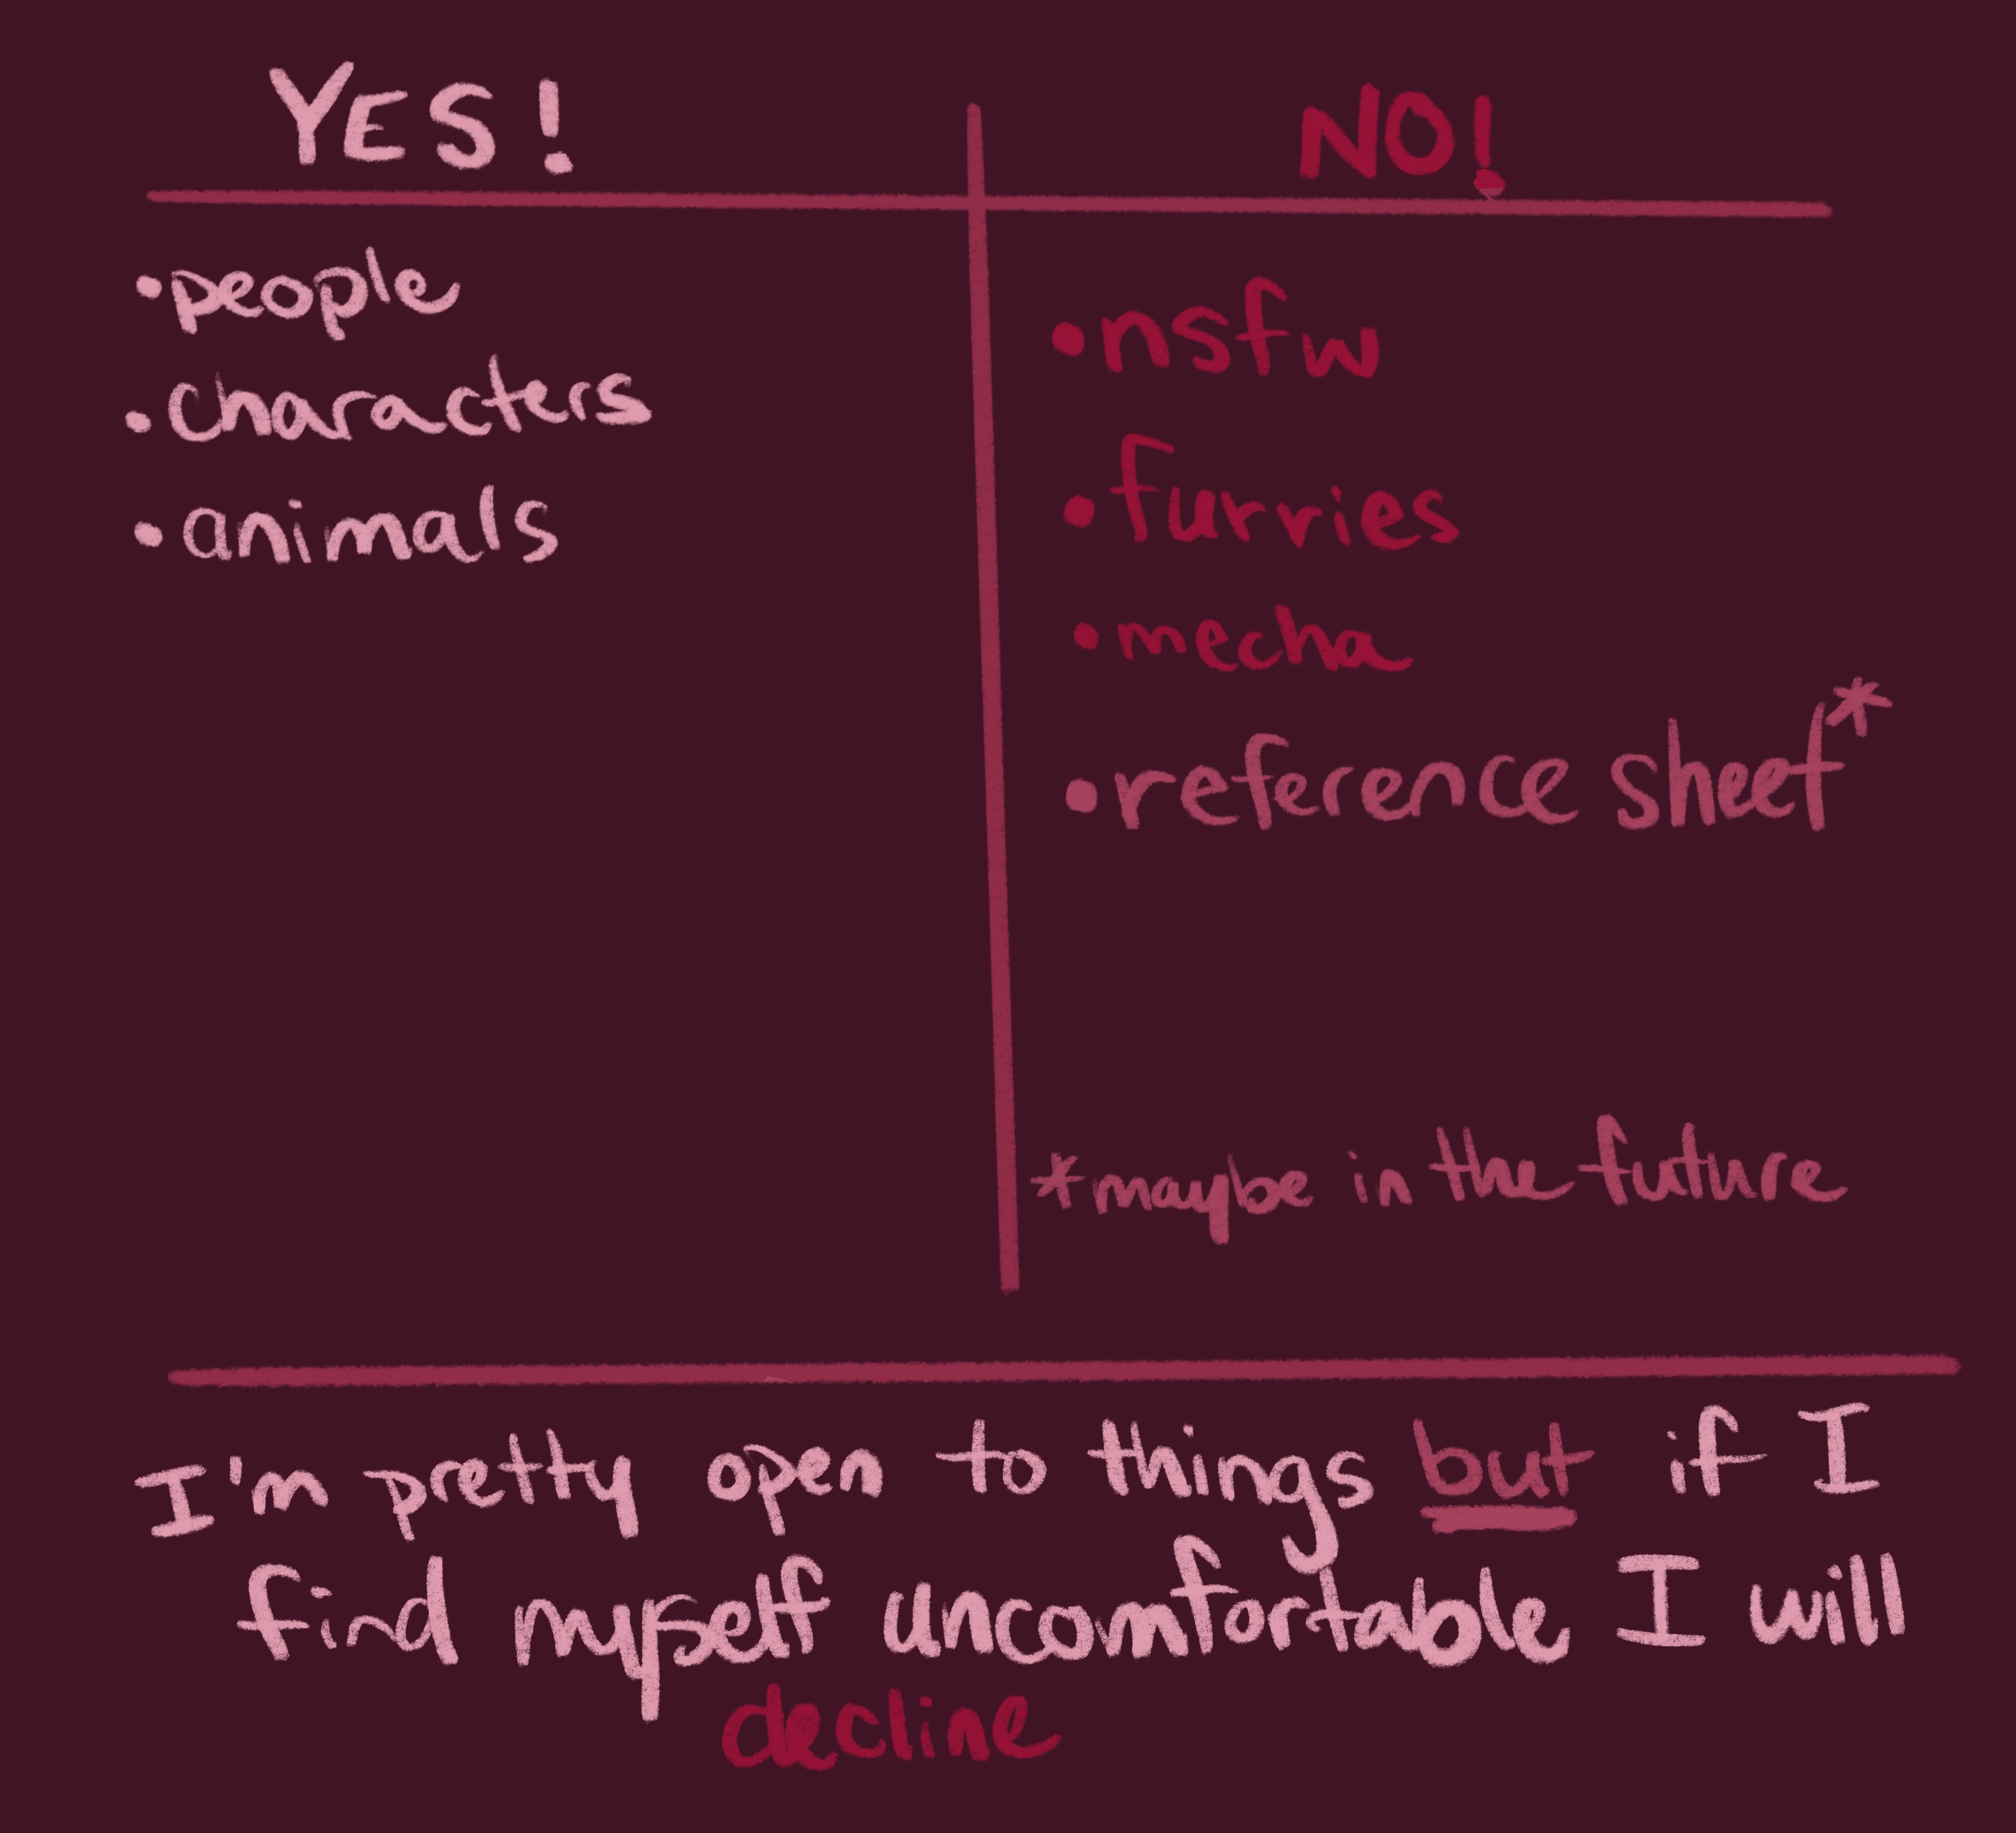 YES!
•people
•characters
•animals
NO!
•nsfw
•furries
•mecha
•reference sheet*
*maybe in the future
I'm pretty open to things but if I
find myself uncomfortable I will
decline